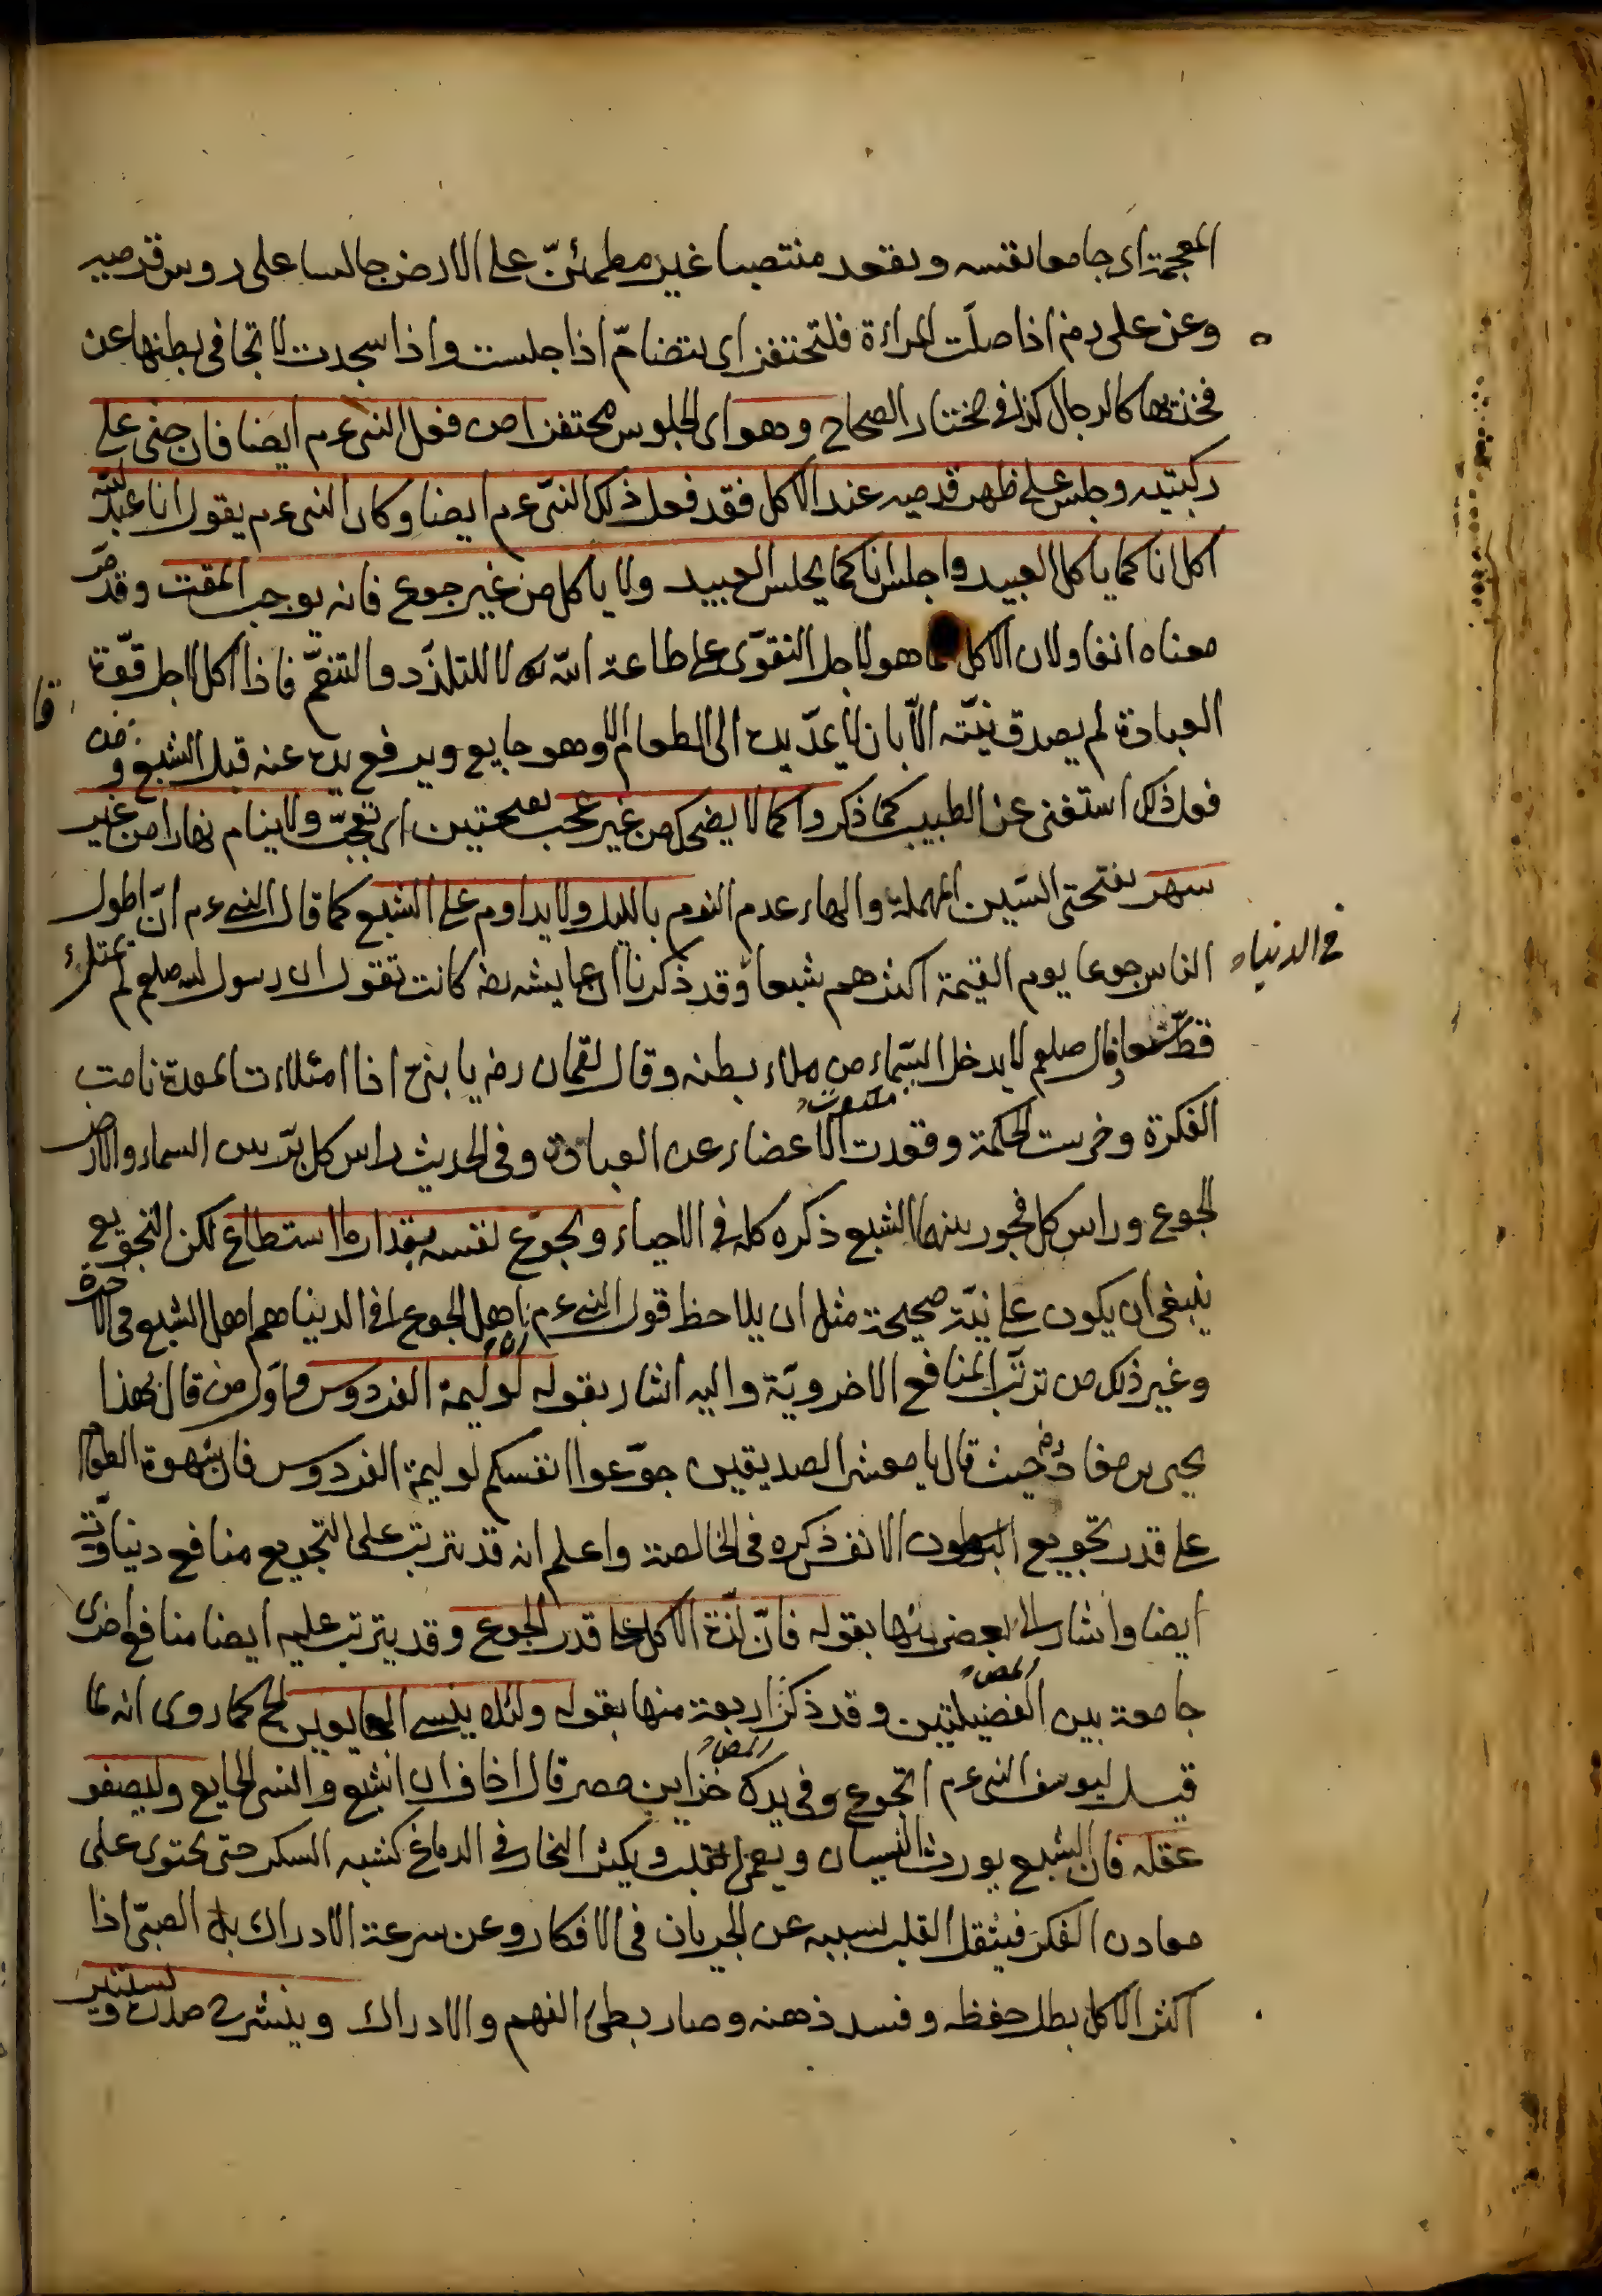 المعجمة اى جامعا نفسه ويقعد منتصبا غير مطمئنّ على الارض جالسا على روس قدميه
وعن على رض اذا صلّت المراءة فلتحتفز اى تتضامّ اذا جلست واذا سجدت لا تجافى بطنها عن
فخذيها كالرجال كذا فى مختار الصحاح وهو اى الجلوس محتفزا من فعل النبى عم ايضا فان جثى على
ركبتيه وجلس على ظهر قدميه عند الاكل فقد فعل ذلك النبىّ عم ايضا وكان النبى عم يقول انا عبد الله
اكل انا كما ياكل العبيد واجلس انا كما يجلس العبيد ولا ياكل من غير جوع فانه يوجب المقت وقد مرّ
معناه انفا ولان الاكل انما هو لاجل التقوّى على طاعة الله تع لا للتلذّذ والتنعّم فاذا اكل لاجل قوّة
العبادة لم يصدق نيّته الّا بان لا يمدّ يده الى الطعام الا وهو جايع ويرفع يده عنه قبل الشبع ومن
فعل ذلك استغنى عن الطبيب كما ذكروا كما لا يضحك من غير عجب بفتحتين اى تعجّب ولا ينام نهارا من غير
سهر بفتحتى السّين المهملة والهاء عدم النوم بالليل ولا يداوم على الشبع كما قال النبى عم انّ اطول
الناس جوعا يوم القيمة اكثرهم شبعا وقد ذكرنا ان عايشه رضه كانت تقول ان رسول الله صلعم لم يمتلئ
فى الدنيا
قطّ شبعا وقال صلعم لا يدخل السّماء من ملاء بطنه وقال لقمان رض يا بنى اذا امتلاءت المعدة نامت
الفكرة وخرست الحكمة وقعدت الاعضاء عن العبادة وفى الحديث راس كل برّ بين السماء والارض
الجوع وراس كل فجور بينهما الشبع ذكره كله فى الاحياء ويجوّع نفسه بمقدار ما استطاع لكن التجويع
ينبغى ان يكون على نيّة صحيحة مثل ان يلاحظ قول النبى عم اهل الجوع فى الدنيا هم اهل الشبع فى الاخرة
وغير ذلك من ترتّب المنافع الاخرويّة واليه اشار بقوله لوليمة الفردوس واوّل من قال بهذا
يحيى بن معاذ رض حيث قال يا معشر الصديقين جوّعوا انفسكم لوليمة الفردوس فان شهوة الطعام
على قدر تجويع البطون الانفس ذكره فى الخالصة واعلم انه قد يترتب على التجويع منافع دنياويّة
ايضا واشار الى بعض منها بقوله فانّ لذّة الاكل على قدر الجوع وقد يترتب عليه ايضا منافع اخرى
جامعة بين الفضيلتين وقد ذكر اربعة منها بقوله ولئلا ينسى الجايعين الخ كما روى انه لما
قيل ليوسف النبى عم اتجوع وفى يدك خزاين مصر قال اخاف ان اشبع وانسى الجايع وليصفو
عقله فان الشبع يورث النسيان ويعمى القلب ويكثر البخار فى الدماغ كشبه السكر حتى يحتوى على
معادن الفكر فيثقل القلب بسببه عن الجريان فى الافكار وعن سرعة الادراك بل الصبىّ اذا
اكثر الاكل بطل حفظه وفسد ذهنه وصار بطئ الفهم والادراك وينشرح صدره ويستنير